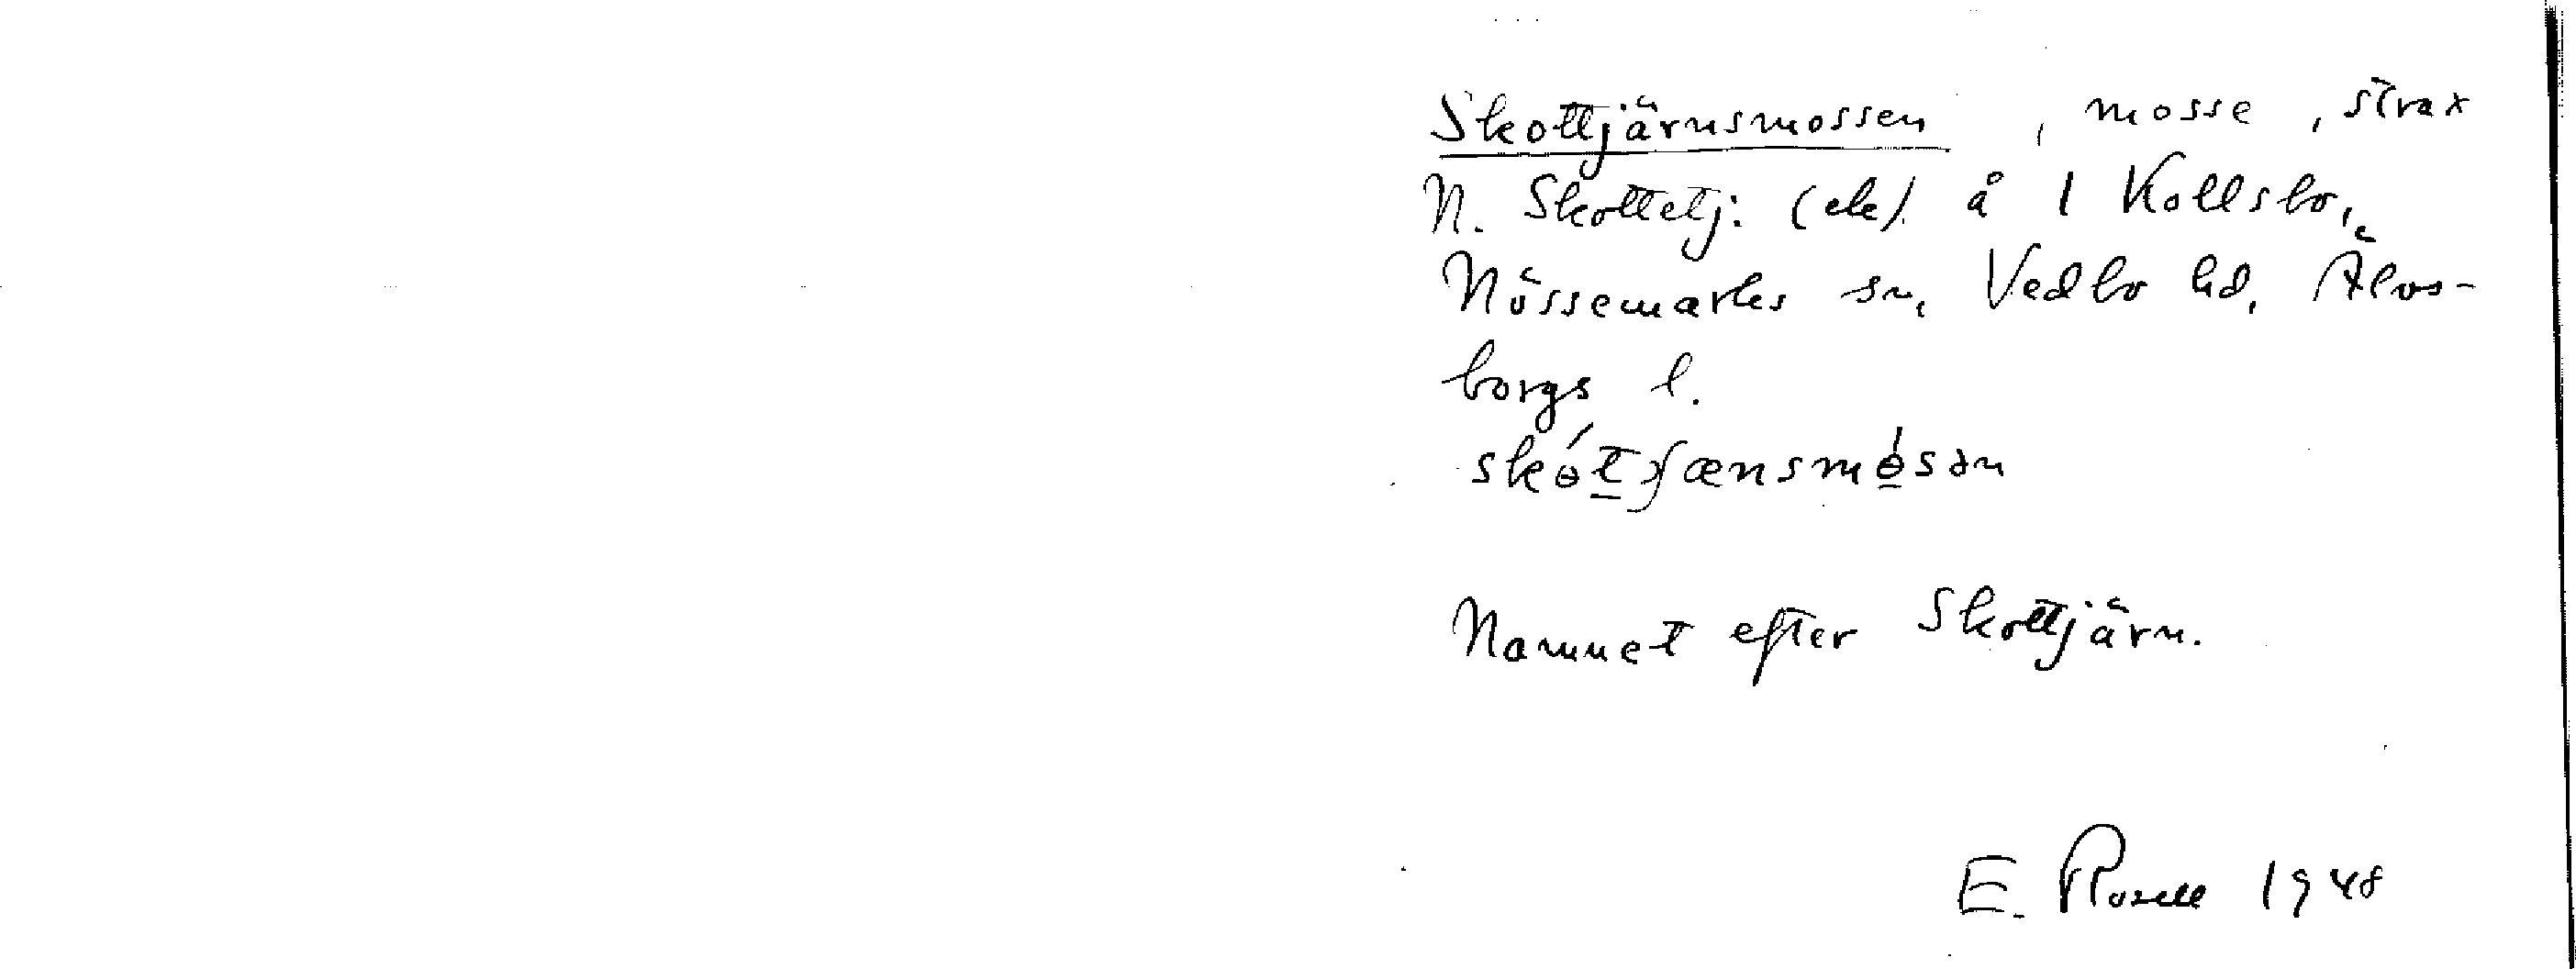 Skottjärnsmossen, mosse, strax
N. Skottetj: (ek) å 1 Kollsbo,
Nössemarks sn, Vedbo hd, Älvs-
borgs l.
Namnet efter Skottjärn.
E. Rosell 1948